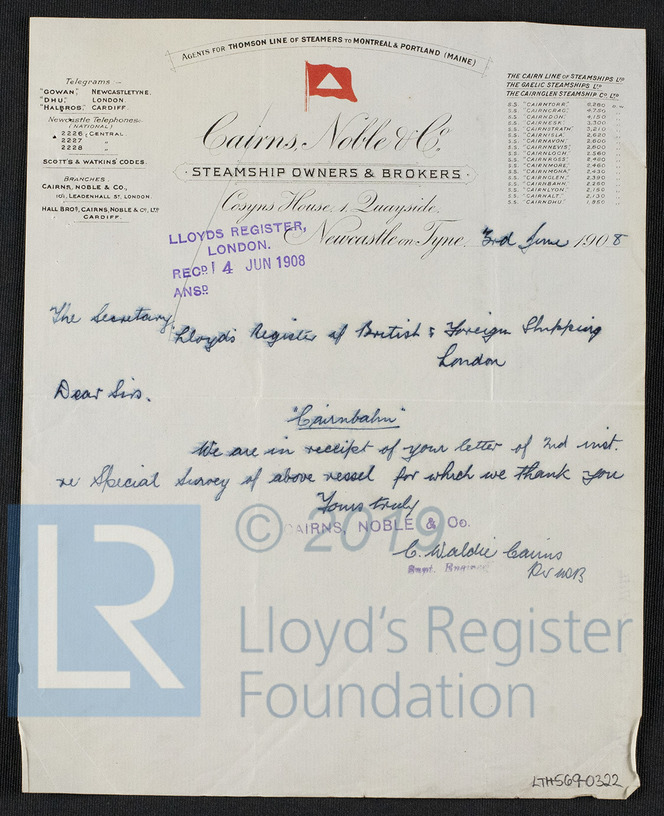 AGENTS FOR THOMSON LINE OF STEAMERS TO MONTREAL & PORTLAND (MAINE)
Telegrams :-
"GOWAN," NEWCASTLETYNE.
"DHU," LONDON.
"HALBROS," CARDIFF.
Newcastle Telephones:-
(NATIONAL)
2226 CENTRAL
2227 "
2228 "
SCOTT'S & WATKINS' CODES.
BRANCHES.
CAIRNS, NOBLE & CO.,
101, LEADENHALL ST, LONDON.
HALL BROS, CAIRNS, NOBLE & CO, LTD
CARDIFF.
THE CAIRN LINE OF STEAMSHIPS LTD
THE GAELIC STEAMSHIPS LTD
THE CAIRNGLEN STEAMSHIP CO. LTD
S.S. "CAIRNTORR,"
S.S. "CAIRNCRAG," 4,750 "
S.S. "CAIRNDON," 4,150 "
S.S. "CAIRNESK," 3,300 "
S.S. "CAIRNSTRATH," 3,210 "
S.S. "CAIRNISLA," 2,620 "
S.S. "CAIRNAVON," 2,600 "
S.S. "CAIRNNEVIS," 2,600 "
S.S. "CAIRNLOCH," 2,560 "
S.S. "CAIRNROSS," 2,460 "
S.S. "CAIRNMORE," 2,460 "
S.S. "CAIRNMONA," 2,430 "
S.S. "CAIRNGLEN," 2,390 "
S.S. "CAIRNBAHN," 2,250 "
S.S. "CAIRNLYON," 2,150 "
S.S. "CAIRNALT," 2,130 "
S.S. "CAIRNDHU," 1,850 "
Cairns, Noble & Co.
STEAMSHIP OWNERS & BROKERS
Cosyns House, 1, Quayside,
Newcastle on Tyne, 3rd June 1908
LLOYDS REGISTER,
LONDON.
RECD 4 JUN 1908
ANSD
The Secretary
Lloyd's Register of British & Foreign Shipping
London
Dear Sirs.
"Cairnbahn"
We are in receipt of your letter of 2nd inst.
re Special Survey of above vessel for which we thank you
Yours truly
CAIRNS, NOBLE & Co.
C. Waldie Cairns
© 2019
LR
Lloyd's Register
Foundation
LTH569-0322